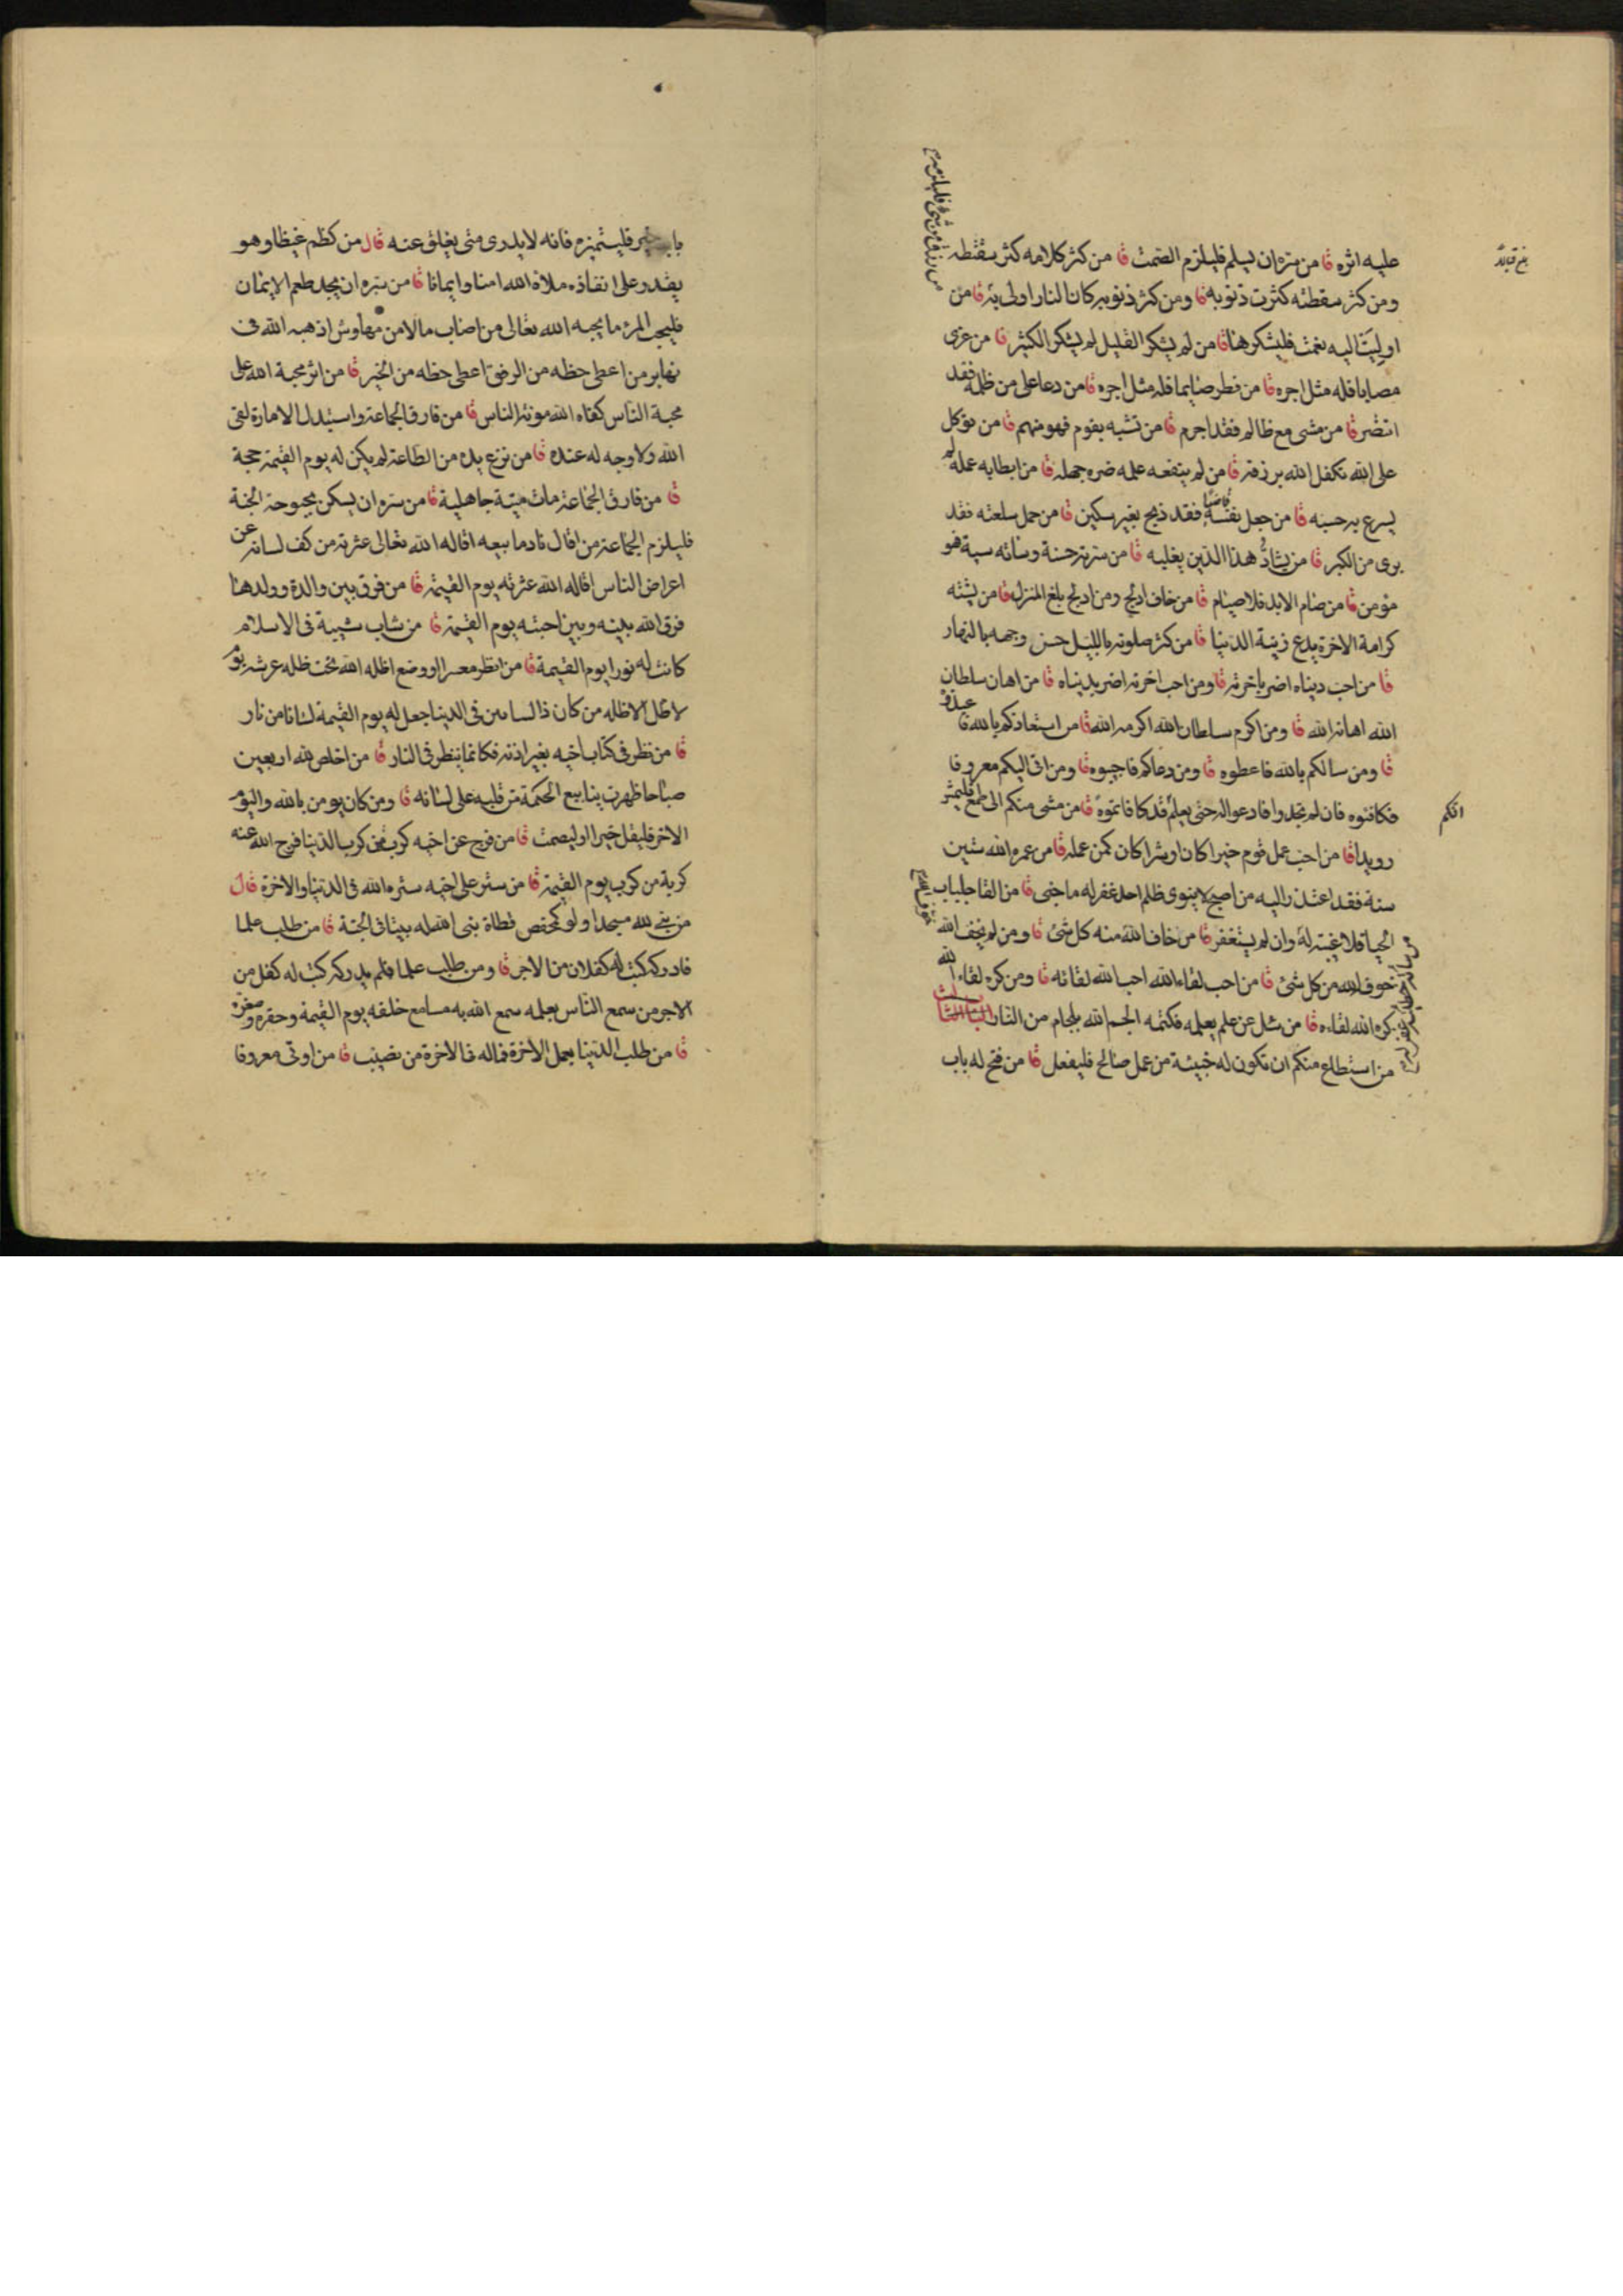 عليه اثره قا من سره ان يسلم فليلزم الصمت قا من كثر كلامه كثر سقطه
ومن كثر سقطته كثرت ذنوبه قا ومن كثر ذنوبه كانا لنار اولى به قا من
اوليت اليه نعمت فليشكرها قا من لم يشكر القليل لم يشكر الكثير قا من عزى
مصابا فله مثل اجره قا من فطر صايما فله مثل اجره قا من دعا على من ظلمه فقد
انتصر قا من مشى مع ظالم فقد اجرم قا من تشبه بقوم فهو منهم قا من توكل
على الله تكفل الله برزقه قا من لم ينفعه علمه ضره جهله قا من ابطا به عمله لم
يسرع به حسبه قا من جعل نفسه قاضيا فقد ذبح بغير سكين قا من حمل سلعته فقد
برى من الكبر قا من يشاد هذا الدين يغلبه قا من سرته حسنة وساته سية هو
مؤمن قا من صام الابد فلا صيام قا من خاف ادلج ومن ادلج بلغ المنزل قا من يشته
كرامة الاخرة يدع زينة الدنيا قا من كثر صلوته بالليل حسن وجهه بالنهار
قا من احب دنياه اضر باخرته قا ومن احب اخرته اضر بدنياه قا من اهان سلطان
الله اهانه الله قا ومن اكرم سلطان الله اكرمه الله قا من استعاذكم بالله فا عيذوه
قا ومن سالكم بالله فاعطوه قا ومن دعاكم فاجيبوه قا ومن اتى اليكم معروفا
فكافئوه فان لم تجدوا فادعوا له حتى يعلم قد كافاتموه قا من مشى منكم الى طمع فليمش
انكم
رويدا قا من احب عمل قوم خيرا كان او شرا كان كمن عمله قا من عمره الله ستين
سنة فقد اعتذر اليه من اصبح لا ينوى ظلم احد غفر له ما جنى قا من القا جلباب
الحيا فلا غيبة له وان لم يستغفر قا من خاف الله منه كل شئ قا ومن لم يخف الله
خوف الله من كل شئ قا من احب لقاء الله احب الله لقائه قا ومن كره لقاء الله
كره الله لقاءه قا من سئل عن علم يعلمه فكتمه الجم الله بلجام من النار الباب الثالث
من استطاع منكم ان تكون له خبيئة من عمل صالح فليفعل قا من فتح له باب
من رزق من شئ فليلزمه
باب خير فلينتهزه فانه لا يدرى متى يغلق عنه قال من كظم غيظا وهو
يقدر على انفاذه ملاه الله امنا وايمانا قا من سره ان يجد طعم الايمان
فليحب المرء ما يحبه الله تعالى من اصاب مالا من مهاوش اذهبه الله فى
نهابر من اعطى حظه من الرفق اعطى حظه من الخير قا من اثر محبة الله على
محبة الناس كفاه الله مونة الناس قا من فارق الجماعة واستبدل الامارة لقى
الله ولا وجه له عنده قا من نزع يده من الطاعة لم يكن له يوم القيمة حجة
قا من فارق الجماعة مات ميتة جاهلية قا من سره ان يسكن بحبوحة الجنة
فليلزم الجماعة من اقال نادما بيعه اقاله الله تعالى عثرته من كف لسانه عن
اعراض الناس اقاله الله عثرته يوم القيمة قا من فرق بين والدة وولدها
فرق الله بينه وبين احبته يوم القيمة قا من شاب شيبة فى الاسلام
كانت له نورا يوم القيمة قا من انظر معسرا ووضع اظله الله تحت ظله عرشه يوم
لا ظل الا ظله من كان ذا لسانين فى الدنيا جعل له يوم القيمة لسانا من نار
قا من نظر فى كتاب اخيه بغير اذنه فكانما ينظر فى النار قا من اخلص لله اربعين
صباحا ظهرت ينابيع الحكمة من قلبه على لسانه قا ومن كان يومن بالله واليوم
الاخر فليقل خيرا او ليصمت قا من فرج عن اخيه كربة من كرب الدنيا فرج الله عنه
كربة من كرب يوم القيمة قا من ستر على اخيه ستره الله فى الدنيا والاخرة قال
من بنى لله مسجدا ولو كمفحص قطاة بنى الله له بيتا فى الجنة قا من طلب علما
فادركه كتب له كفلان من الاجر قا ومن طلب علما فلم يدركه كتب له كفل من
الاجر من سمع الناس بعلمه سمع الله به مسامع خلقه يوم القيمة وحقره وصغره
قا من طلب الدنيا بعمل الاخرة فماله فى الاخرة من نصيب قا من اوتى معروفا